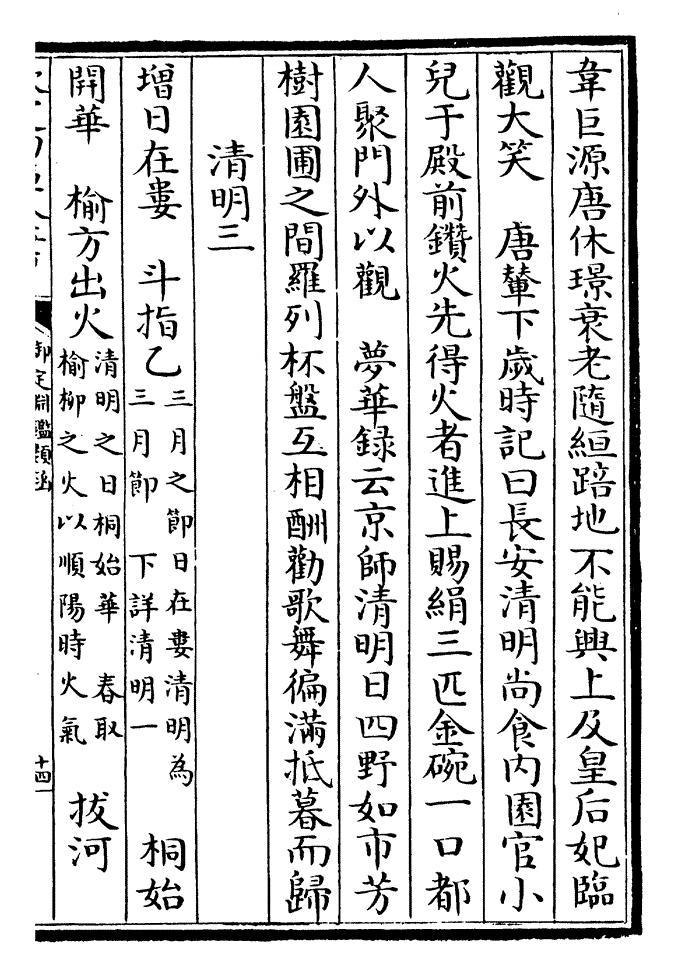 韋巨源唐休璟衰老隨絙踣地不能興上及皇后妃臨
觀大笑　唐輦下歲時記曰長安清明尚食內園官小
兒于殿前鑽火先得火者進上賜絹三匹金碗一口都
人聚門外以觀　夢華録云京師清明日四野如市芳
樹園圃之間羅列杯盤互相酬勸歌舞徧滿抵暮而歸
清明三
增日在婁　斗指乙三月之節日在婁清明為三月節　下詳清明一　桐始
開華　榆方出火清明之日桐始華　春取榆柳之火以順陽時火氣　拔河
御定淵鑑類函
十四